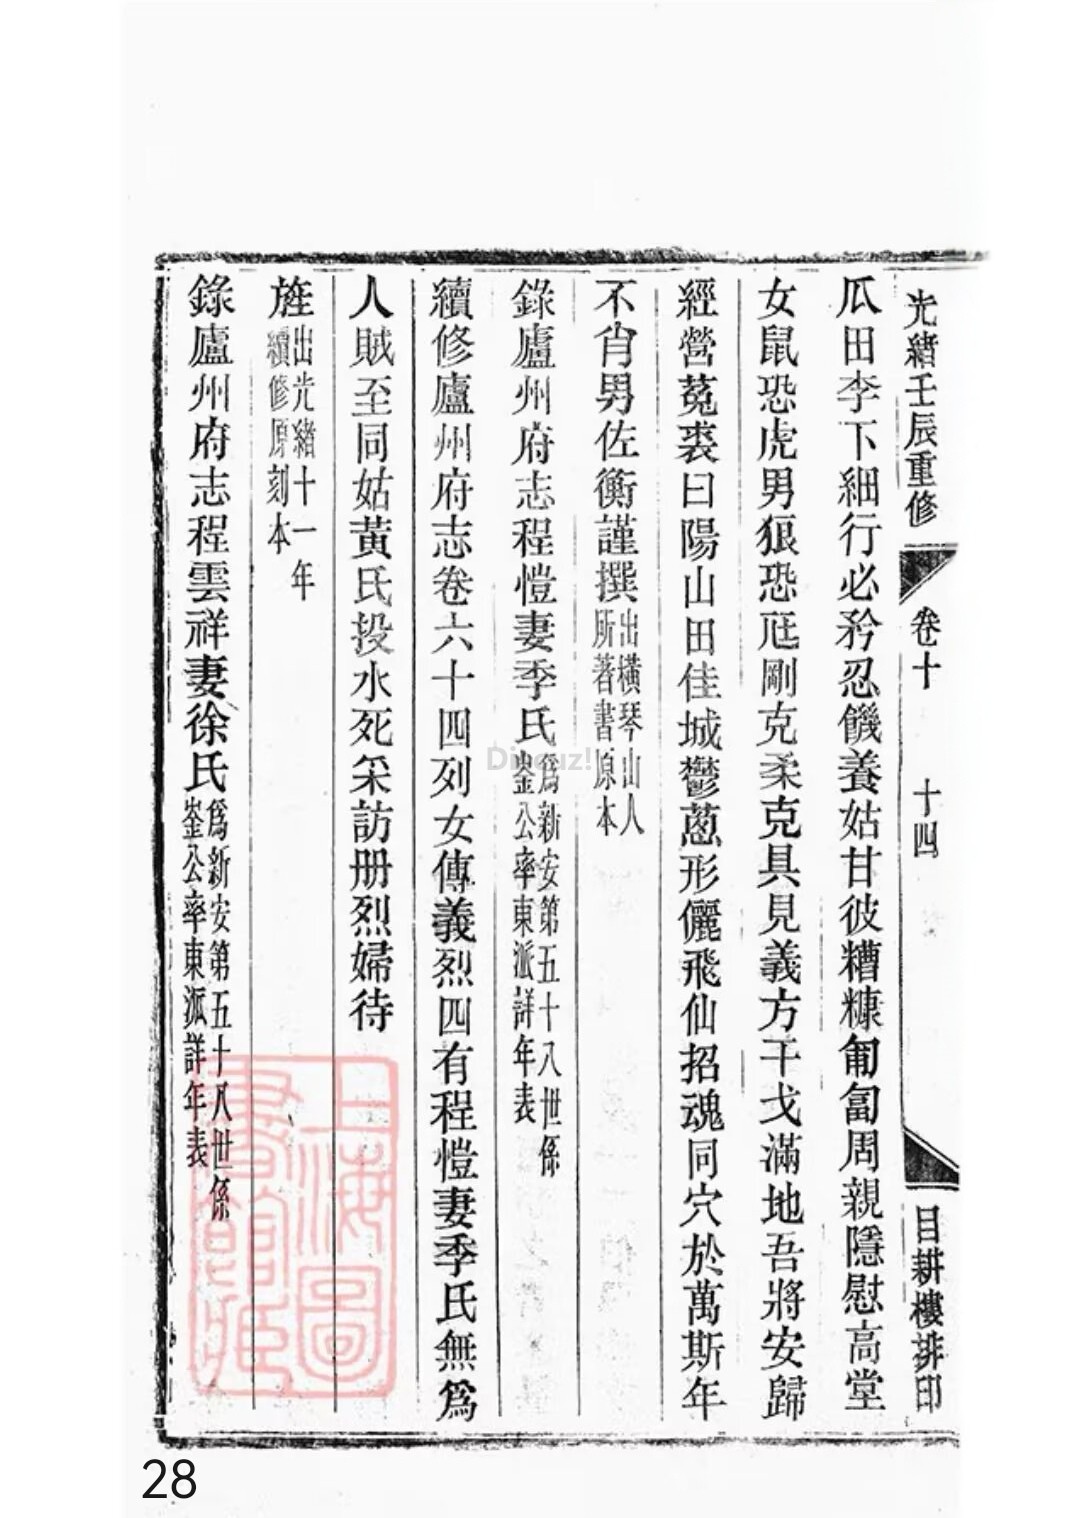 光緒壬辰重修
卷十
十四
目耕樓排印
瓜田李下細行必矜忍饑養姑甘彼糟糠匍匐周親隱慰高堂
女鼠恐虎男狼恐尫剛克柔克具見義方干戈滿地吾將安歸
經營菟裘曰陽山田佳城鬱蔥形儷飛仙招魂同穴於萬斯年
不肖男佐衡謹撰出橫琴山人
所著書原本
錄廬州府志程愷妻季氏爲新安第五十八世係
崟公率東派詳年表
續修廬州府志卷六十四列女傳義烈四有程愷妻季氏無爲
人賊至同姑黃氏投水死采訪册烈婦待
旌出光緒十一年
續修原刻本
錄廬州府志程雲祥妻徐氏爲新安第五十八世係
崟公率東派詳年表
上海圖
書館藏
Discuz!
28